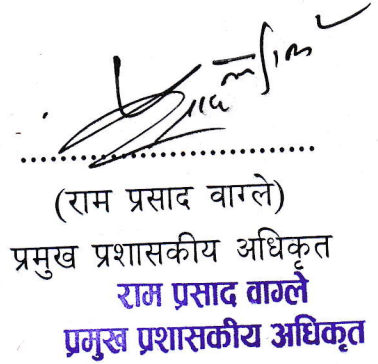 (राम प्रसाद वाग्ले)
प्रमुख प्रशासकीय अधिकृत
राम प्रसाद वाग्ले
प्रमुख प्रशासकीय अधिकृत